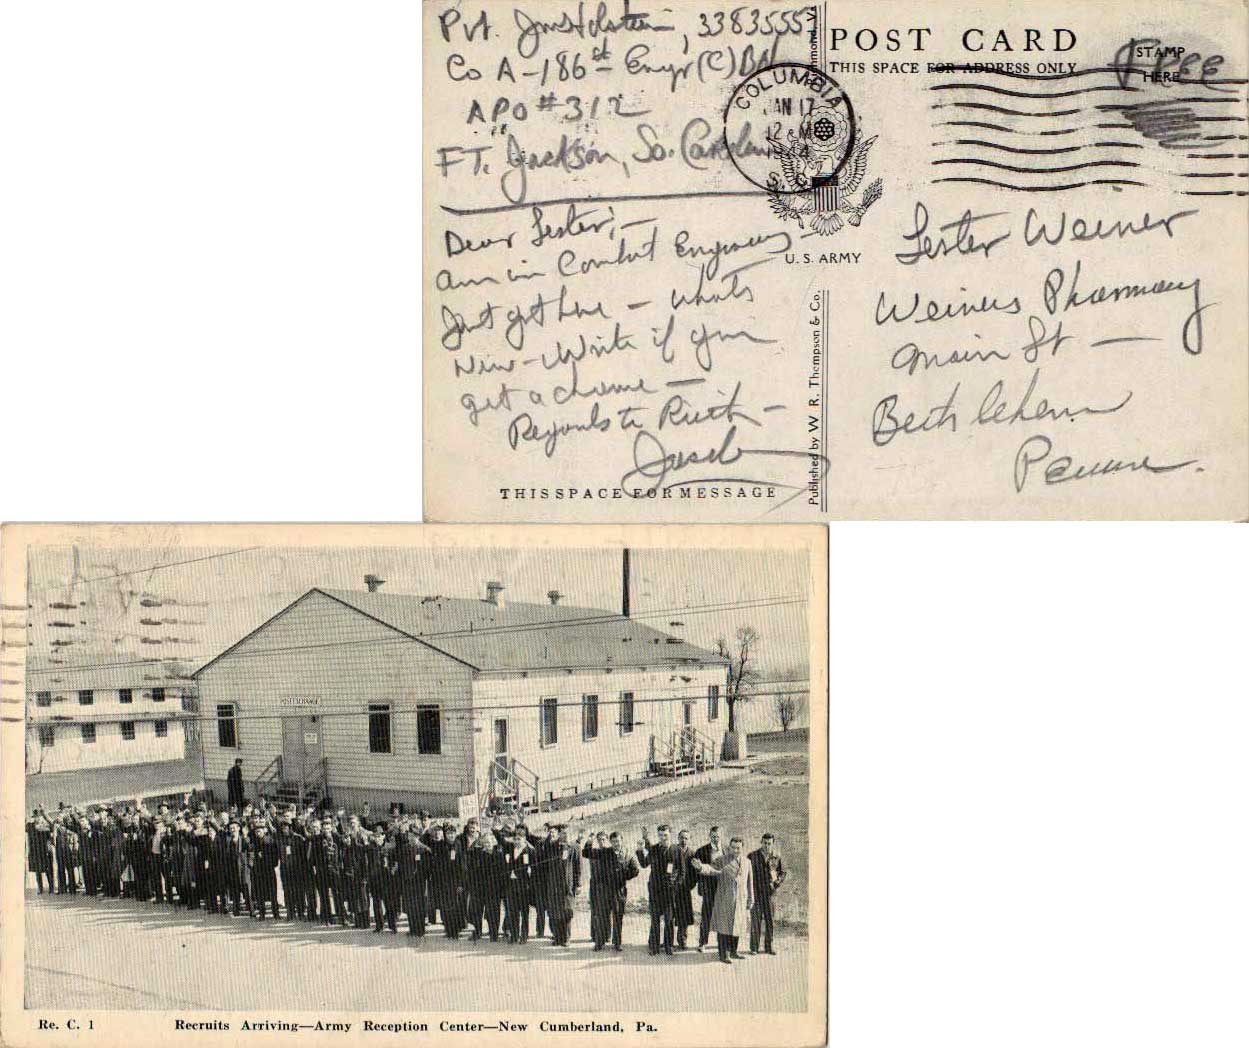 Pvt. Jos Holstein, 33835557
Co A-186st Engr (C) BN
APO #312
FT. Jackson, So. Carolina
Dear Lester,—
Am in Combat Engineers—
Just got here — What's
New - Write if you
get a chance —
Regards to Ruth —
THIS SPACE FOR MESSAGE
Published by W. R. Thompson & Co.
POST CARD
THIS SPACE FOR ADDRESS ONLY
STAMP
HERE
Free
COLUMBIA
JAN 17
12 M
1944
S. C.
U. S. ARMY
Lester Weiner
Weiners Pharmacy
Main St —
Bethlehem
Penna.
POST EXCHANGE
Re. C. 1 Recruits Arriving—Army Reception Center—New Cumberland, Pa.